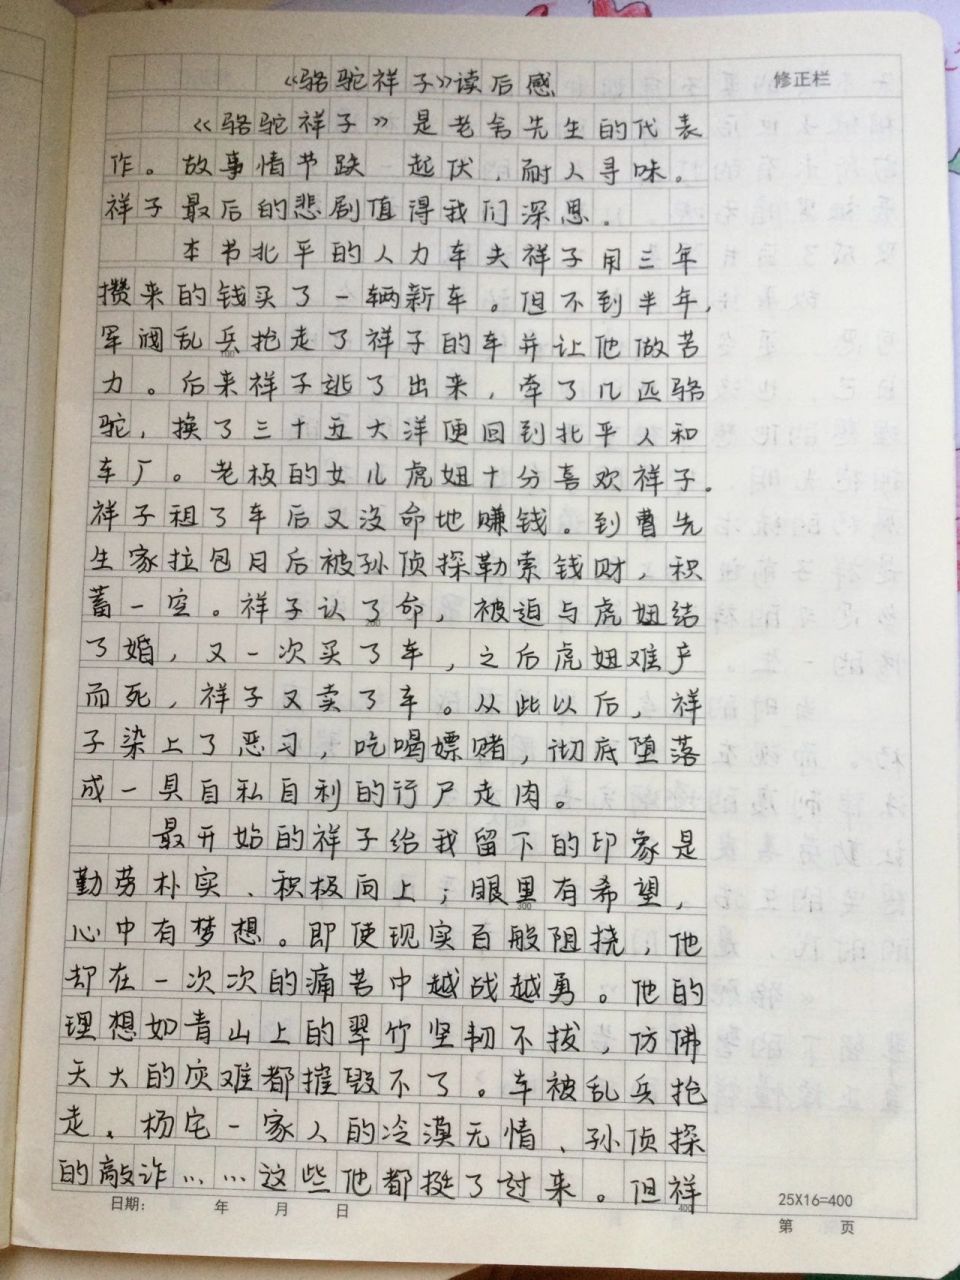 《骆驼祥子》读后感
修正栏
《骆驼祥子》是老舍先生的代表
作。故事情节跌 起伏，耐人寻味。
祥子最后的悲剧值得我们深思．
本书北平的人力车夫祥子用三年
攒来的钱买了一辆新车。但不到半年，
军阀乱兵抢走了祥子的车并让他做苦
力。后来祥子逃了出来，牵了几匹骆
驼，换了三十五大洋便回到北平人和
车厂。老板的女儿虎妞十分喜欢祥子．
祥子租了车后又没命地赚钱。到曹先
生家拉包月后被孙侦探勒索钱财，积
蓄一空。祥子认了命，被迫与虎妞结
了婚，又一次买了车，之后虎妞难产
而死，祥子又卖了车。从此以后，祥
子染上了恶习，吃喝嫖赌，彻底堕落
成一具自私自利的行尸走肉。
最开始的祥子给我留下的印象是
勤劳朴实、积极向上；眼里有希望，
心中有梦想。即使现实百般阻挠，他
却在一次次的痛苦中越战越勇。他的
理想如青山上的翠竹坚韧不拔，仿佛
天大的灾难都摧毁不了。车被乱兵抢
走、杨宅一家人的冷漠无情、孙侦探
的敲诈……这些他都挺了过来。但祥
日期： 年 月 日
25X16=400
第 页